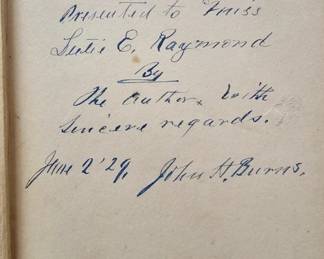 Presented to Miss
Leslie E. Raymond
By
The Author, With
Sincere regards.
June 2' 29, John H. Burns.